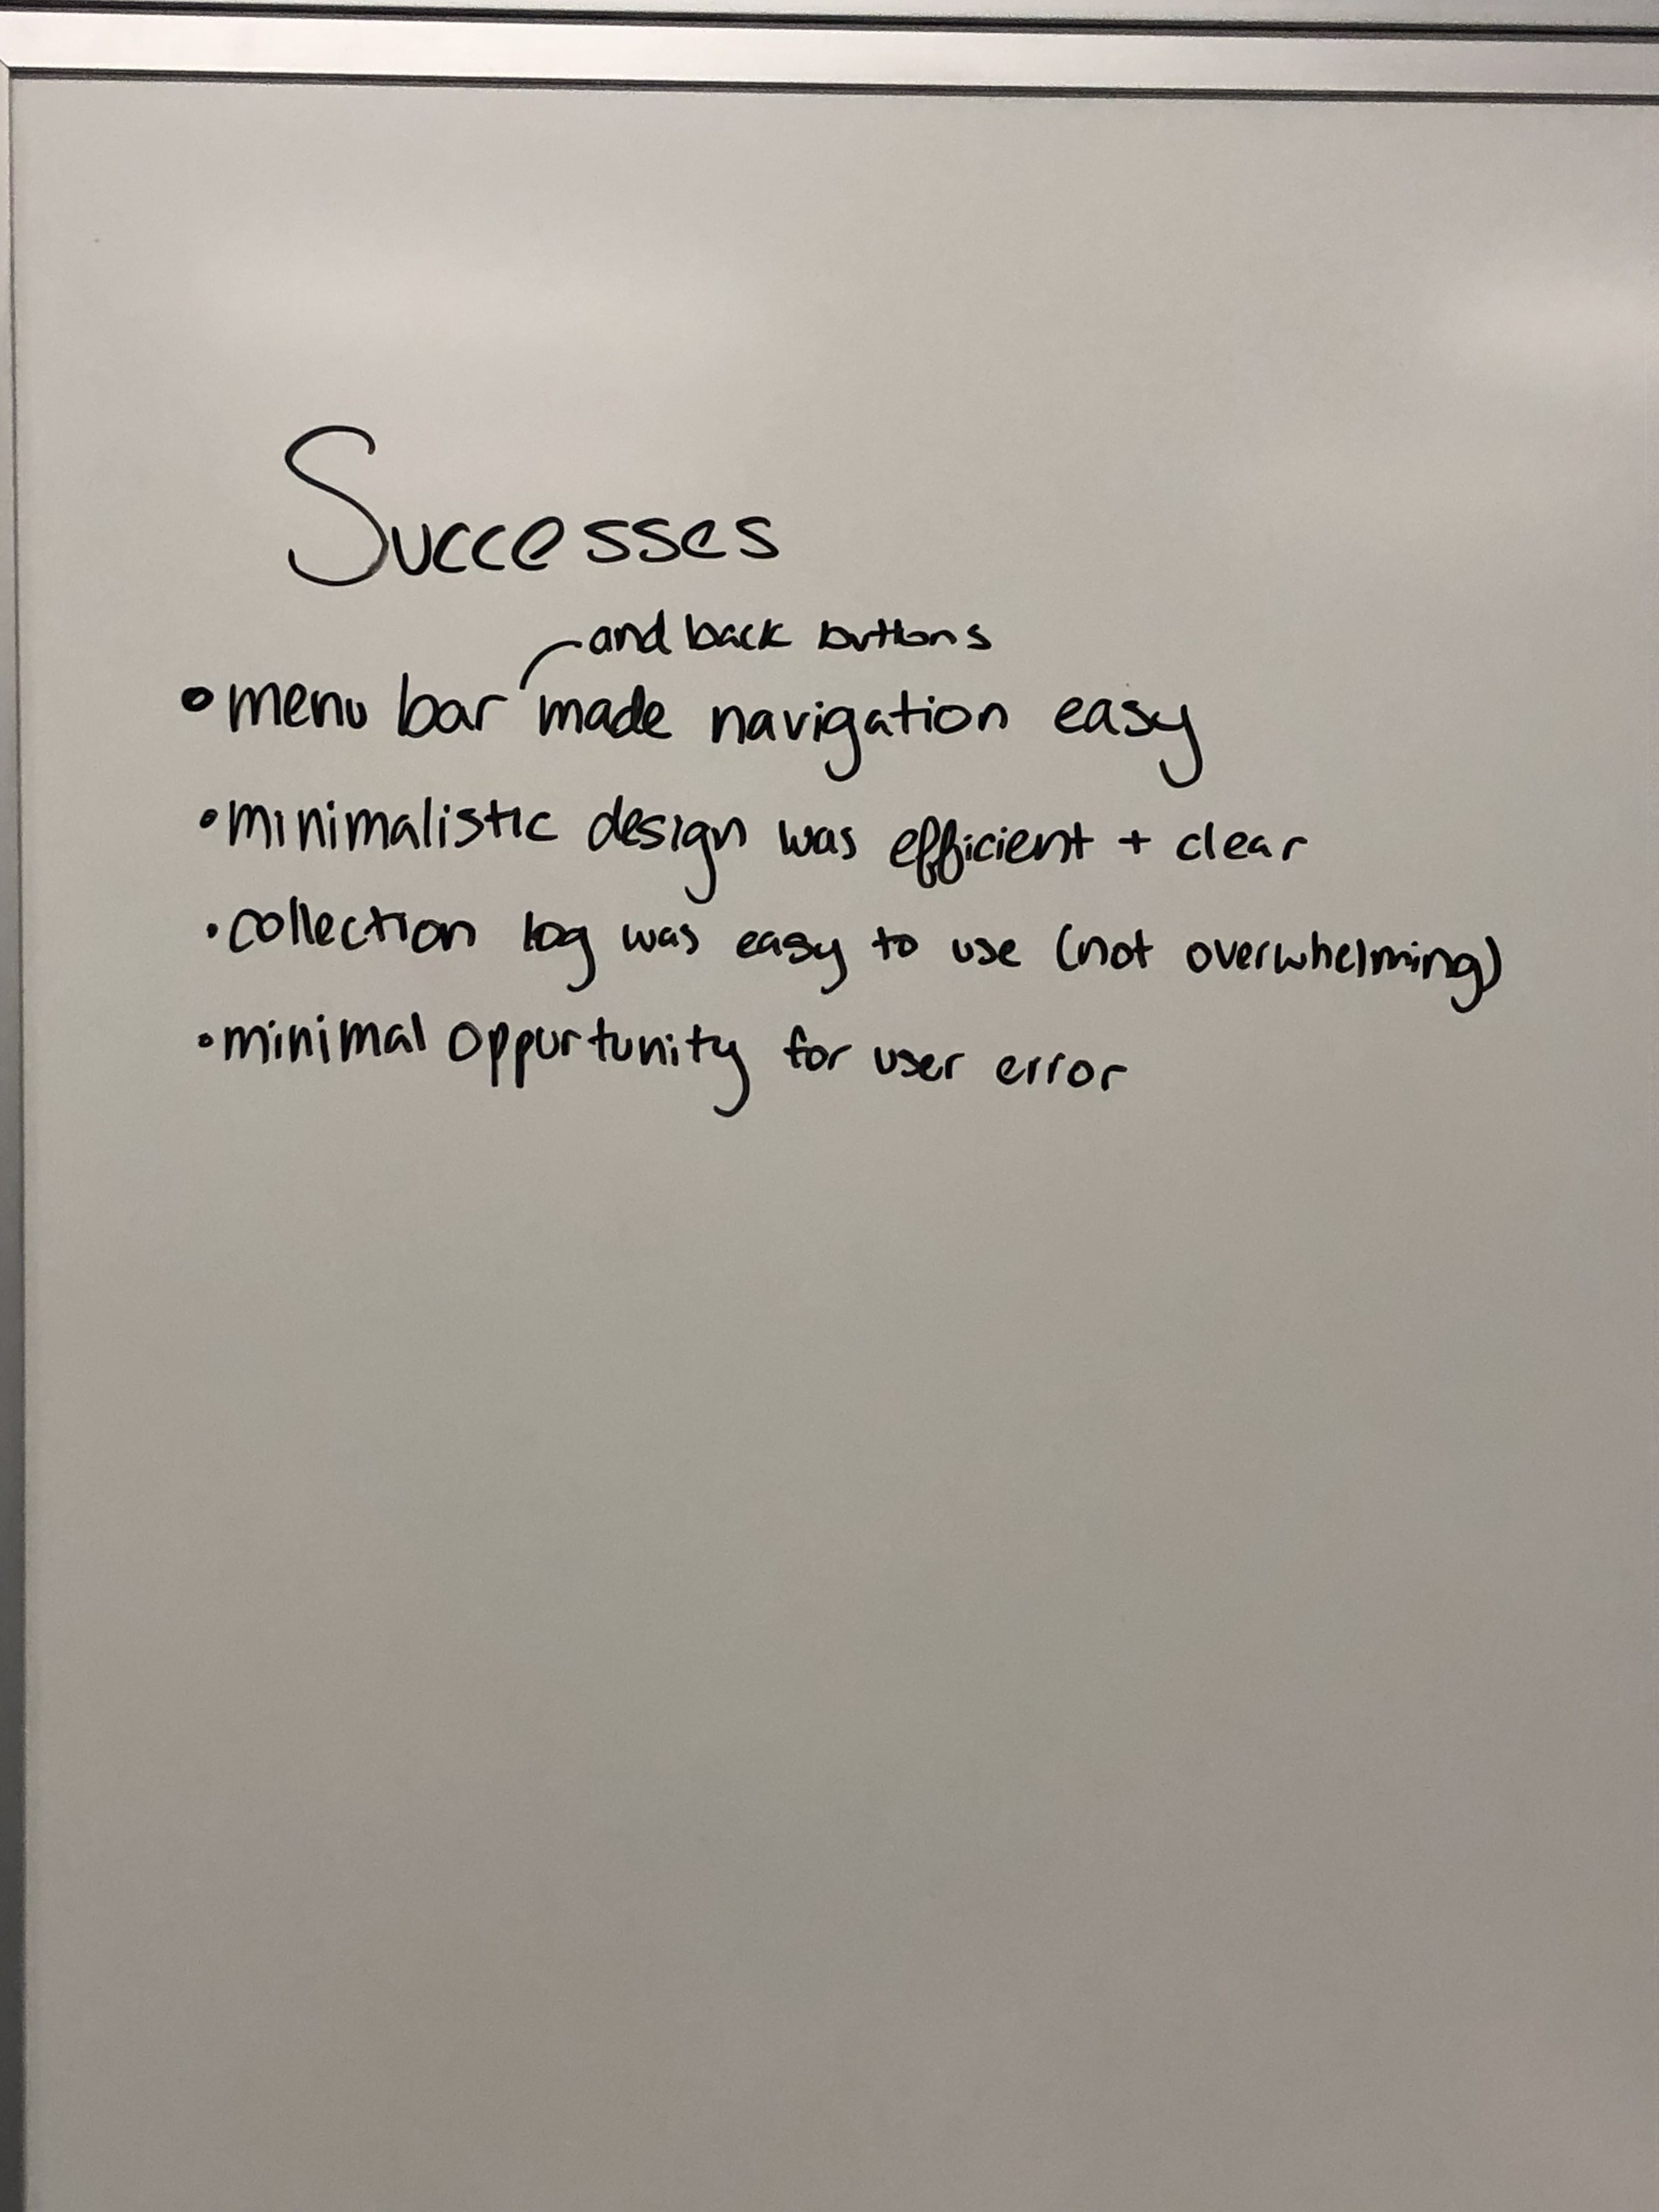 Successes
and back buttons
• menu bar made navigation easy
• minimalistic design was efficient + clear
• collection log was easy to use (not overwhelming)
• minimal oppurtunity for user error